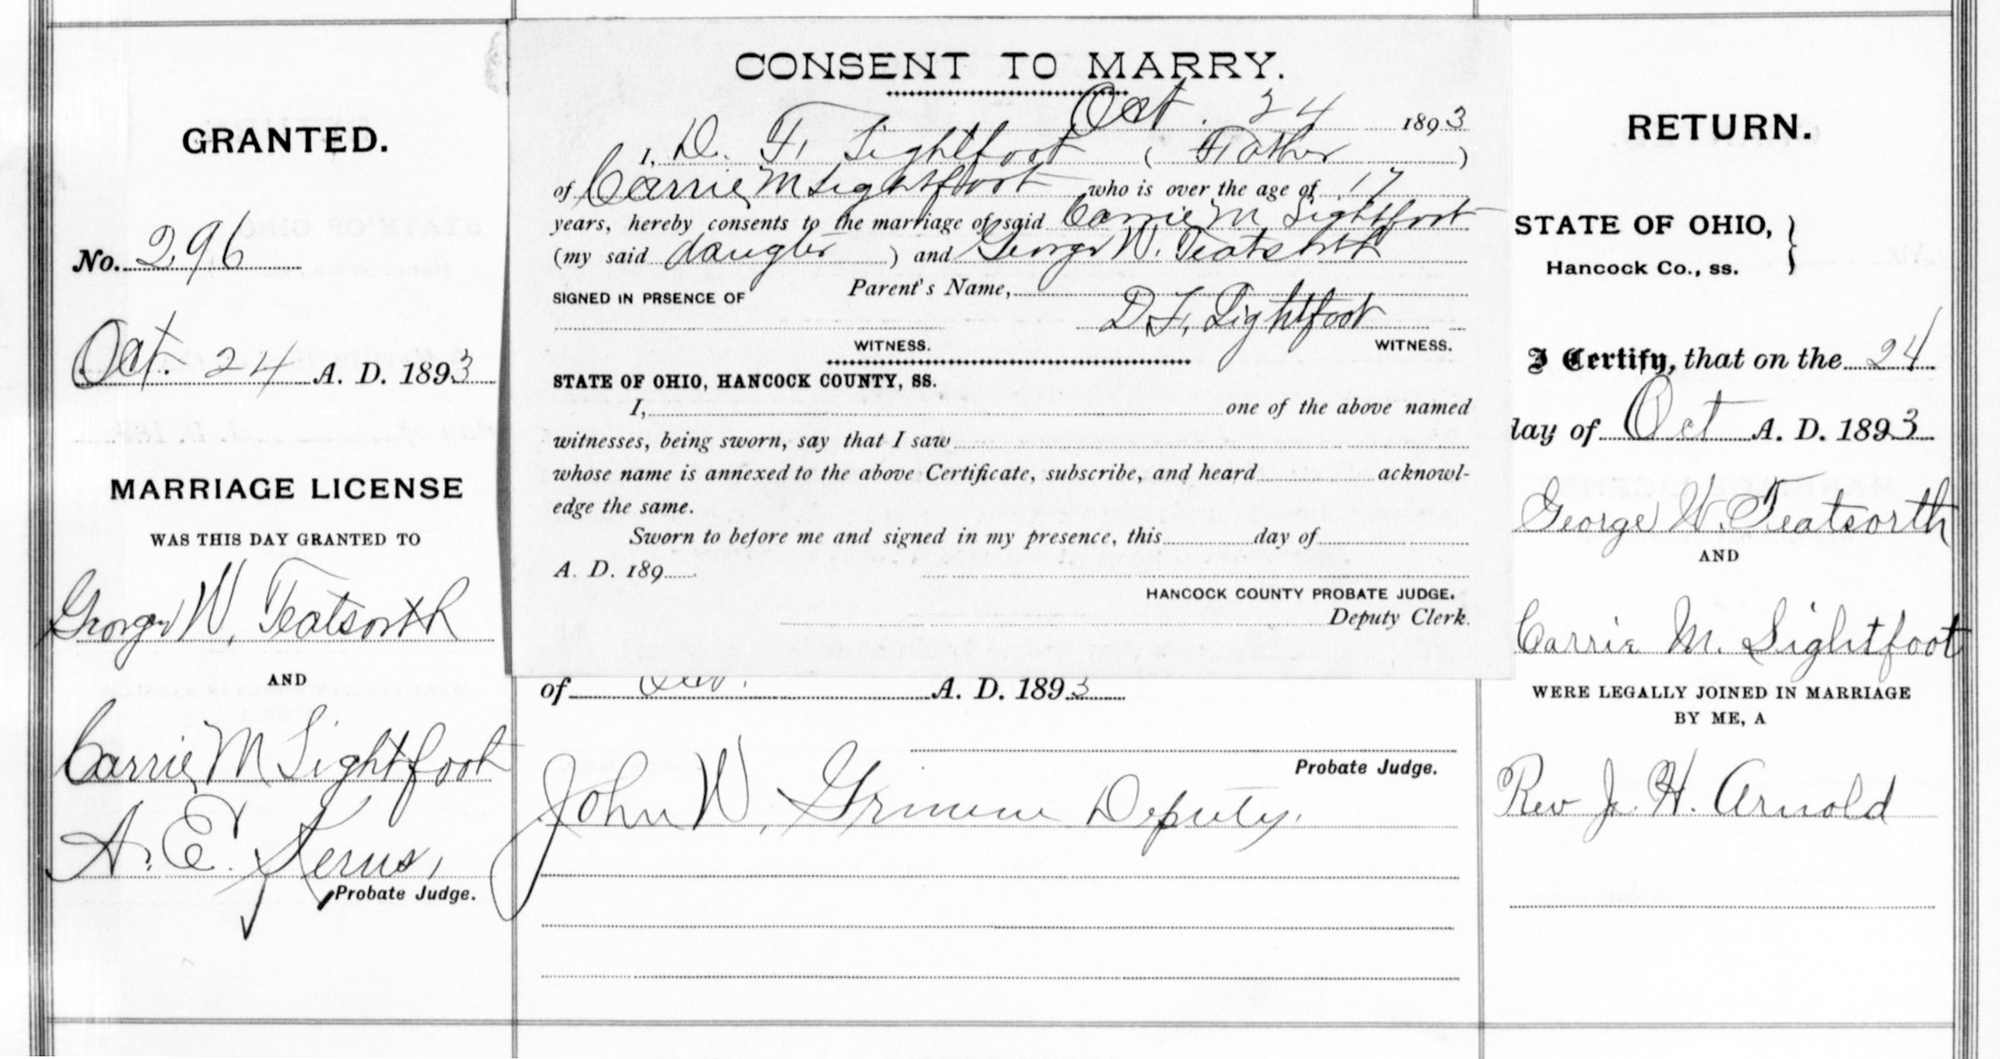 GRANTED.
No. 296
Oct. 24 A. D. 1893
MARRIAGE LICENSE
WAS THIS DAY GRANTED TO
George W. Teatsorth
AND
Carrie M Lightfoot
A. E. Kerns,
Probate Judge.
CONSENT TO MARRY.
Oct. 24 1893
I, D. F. Lightfoot ( Father )
of Carrie M Lightfoot who is over the age of 17
years, hereby consents to the marriage of said Carrie M Lightfoot
(my said daugter ) and George W. Teatsorth
SIGNED IN PRSENCE OF Parent's Name,
D. F. Lightfoot
WITNESS. WITNESS.
STATE OF OHIO, HANCOCK COUNTY, SS.
I, one of the above named
witnesses, being sworn, say that I saw
whose name is annexed to the above Certificate, subscribe, and heard acknowl-
edge the same.
Sworn to before me and signed in my presence, this day of
A. D. 189
HANCOCK COUNTY PROBATE JUDGE.
Deputy Clerk.
of Oct. A. D. 1893
Probate Judge.
John W. Grimm Deputy.
RETURN.
STATE OF OHIO, }
Hancock Co., ss.
I Certify, that on the 24
day of Oct A. D. 1893
George W. Teatsorth
AND
Carrie M. Lightfoot
WERE LEGALLY JOINED IN MARRIAGE
BY ME, A
Rev J. H. Arnold